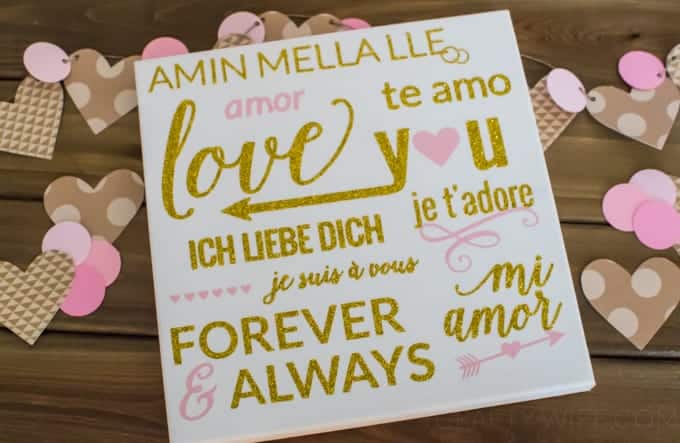 AMIN MELLA LLE
amor
te amo
love you
je t'adore
ICH LIEBE DICH
je suis à vous
mi
amor
FOREVER
& ALWAYS